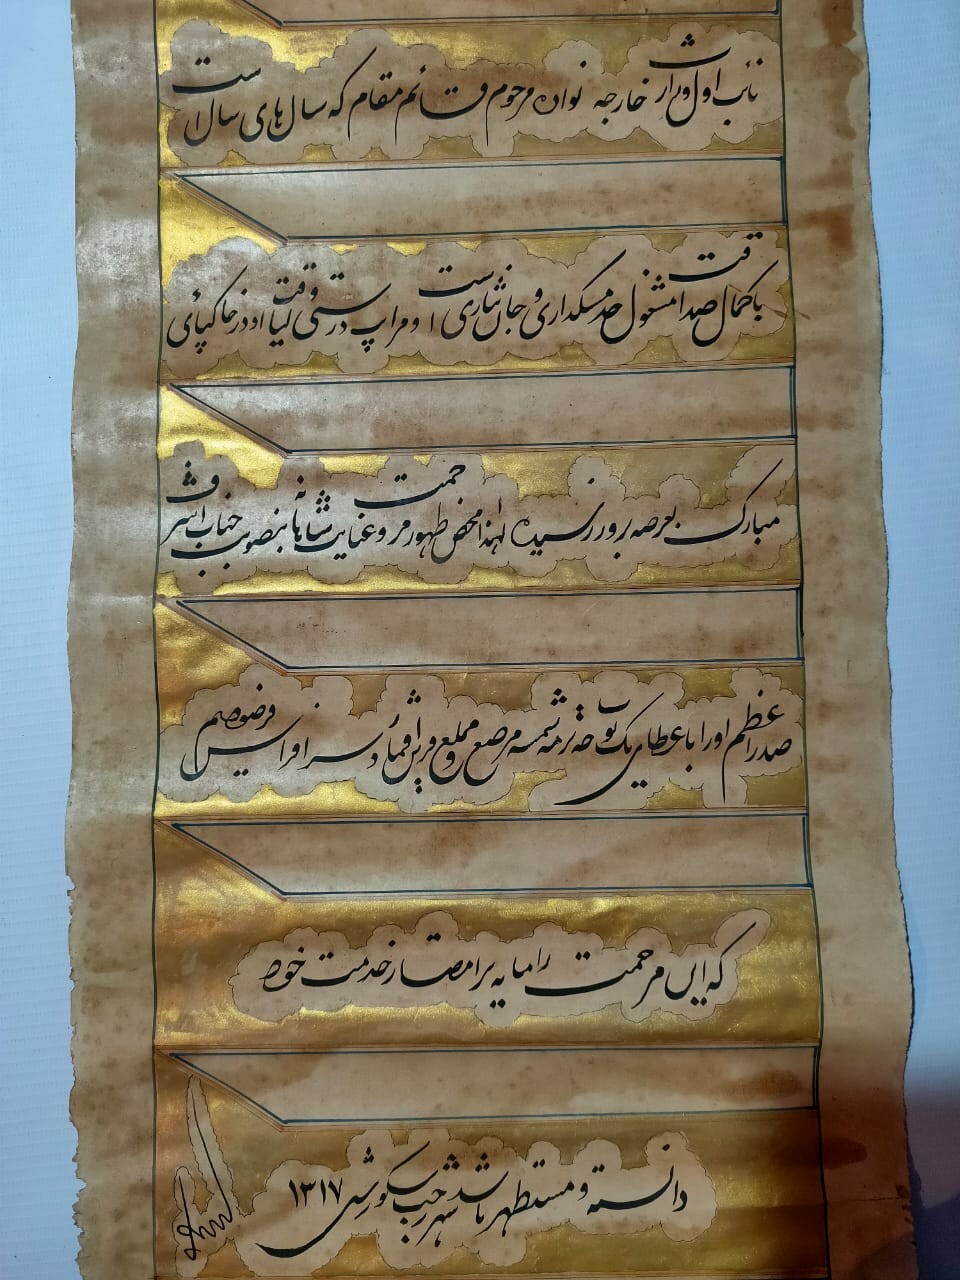 نائب اول وزارت خارجه نواده مرحوم قائم مقام که سال های سال است
با کمال صداقت مشغول خدمتگذاری و جان نثاری است و مراتب درستی و لیاقت او در خاکپای
مبارک بعرصه بروز رسیده لهذا محض ظهور مرحمت و عنایت شاهانه بتصویب جناب اشرف
صدراعظم او را با عطای یک ثوب ترمه شمسه مرصع قرین افتخار و سرافرازی فرمودیم
که این مرحمت را مایه خدمت خود
دانسته و مستظهر باشد شهر رجب ۱۳۱۷